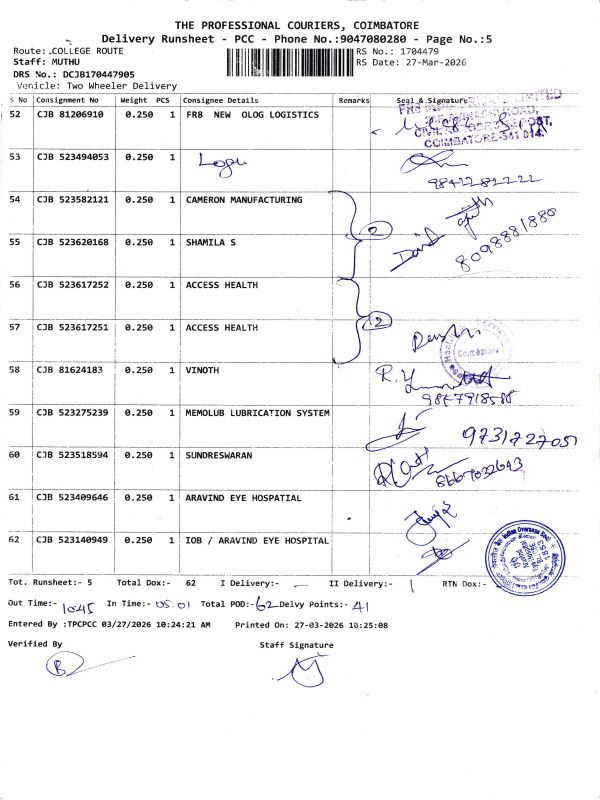 THE PROFESSIONAL COURIERS, COIMBATORE
Delivery Runsheet - PCC - Phone No.:9047080280 - Page No.:5
Route: COLLEGE ROUTE
RS No.: 1704479
Staff: MUTHU
RS Date: 27-Mar-2026
DRS No.: DCJB170447905
Vehicle: Two Wheeler Delivery
S No Consignment No Weight PCS Consignee Details Remarks Seal & Signature
52 CJB 81206910 0.250 1 FR8 NEW OLOG LOGISTICS
COIMBATORE-641 014.
53 CJB 523494053 0.250 1 Logu
9842281222
54 CJB 523582121 0.250 1 CAMERON MANUFACTURING
2
8098881880
55 CJB 523620168 0.250 1 SHAMILA S
56 CJB 523617252 0.250 1 ACCESS HEALTH
2
57 CJB 523617251 0.250 1 ACCESS HEALTH
Coimbatore
58 CJB 81624183 0.250 1 VINOTH
59 CJB 523275239 0.250 1 MEMOLUB LUBRICATION SYSTEM
9731727051
60 CJB 523518594 0.250 1 SUNDRESWARAN
8667032643
61 CJB 523409646 0.250 1 ARAVIND EYE HOSPATIAL
62 CJB 523140949 0.250 1 IOB / ARAVIND EYE HOSPITAL
Indian Overseas Bank
Tot. Runsheet:- 5 Total Dox:- 62 I Delivery:- - II Delivery:- 1 RTN Dox:-
Out Time:- 10.45 In Time:- 05.01 Total POD:- 62 Delvy Points:- 41
Entered By :TPCPCC 03/27/2026 10:24:21 AM Printed On: 27-03-2026 10:25:08
Verified By
Staff Signature